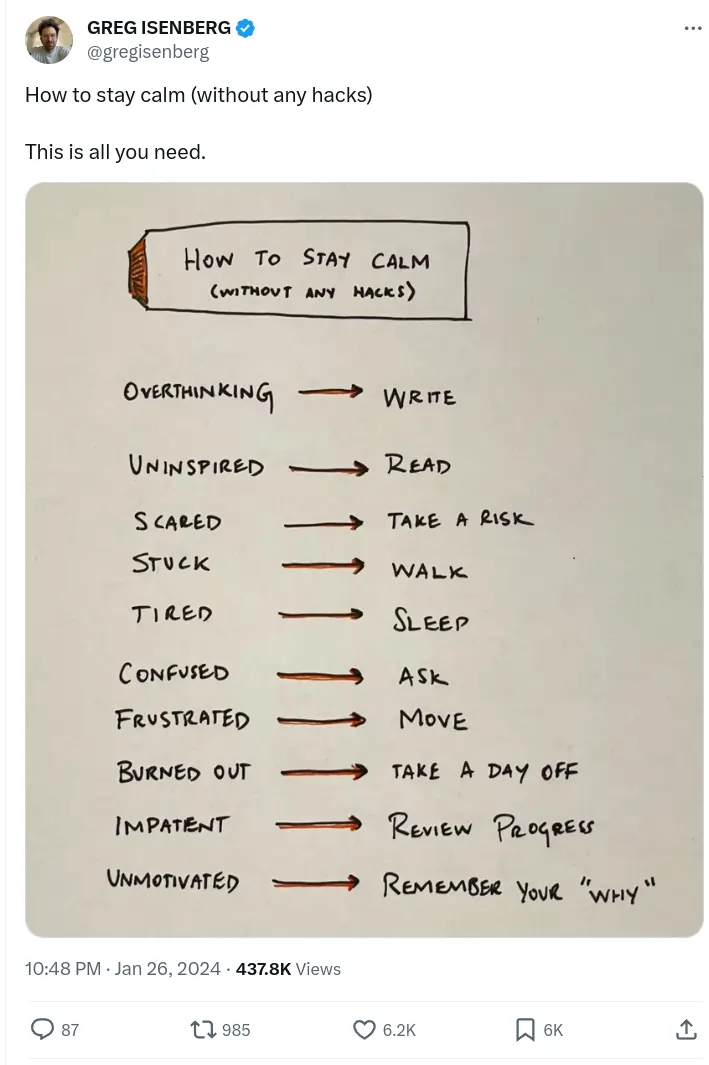 GREG ISENBERG
@gregisenberg
How to stay calm (without any hacks)
This is all you need.
HOW TO STAY CALM
(WITHOUT ANY HACKS)
OVERTHINKING → WRITE
UNINSPIRED → READ
SCARED → TAKE A RISK
STUCK → WALK
TIRED → SLEEP
CONFUSED → ASK
FRUSTRATED → MOVE
BURNED OUT → TAKE A DAY OFF
IMPATIENT → REVIEW PROGRESS
UNMOTIVATED → REMEMBER YOUR "WHY"
10:48 PM · Jan 26, 2024 · 437.8K Views
87 985 6.2K 6K